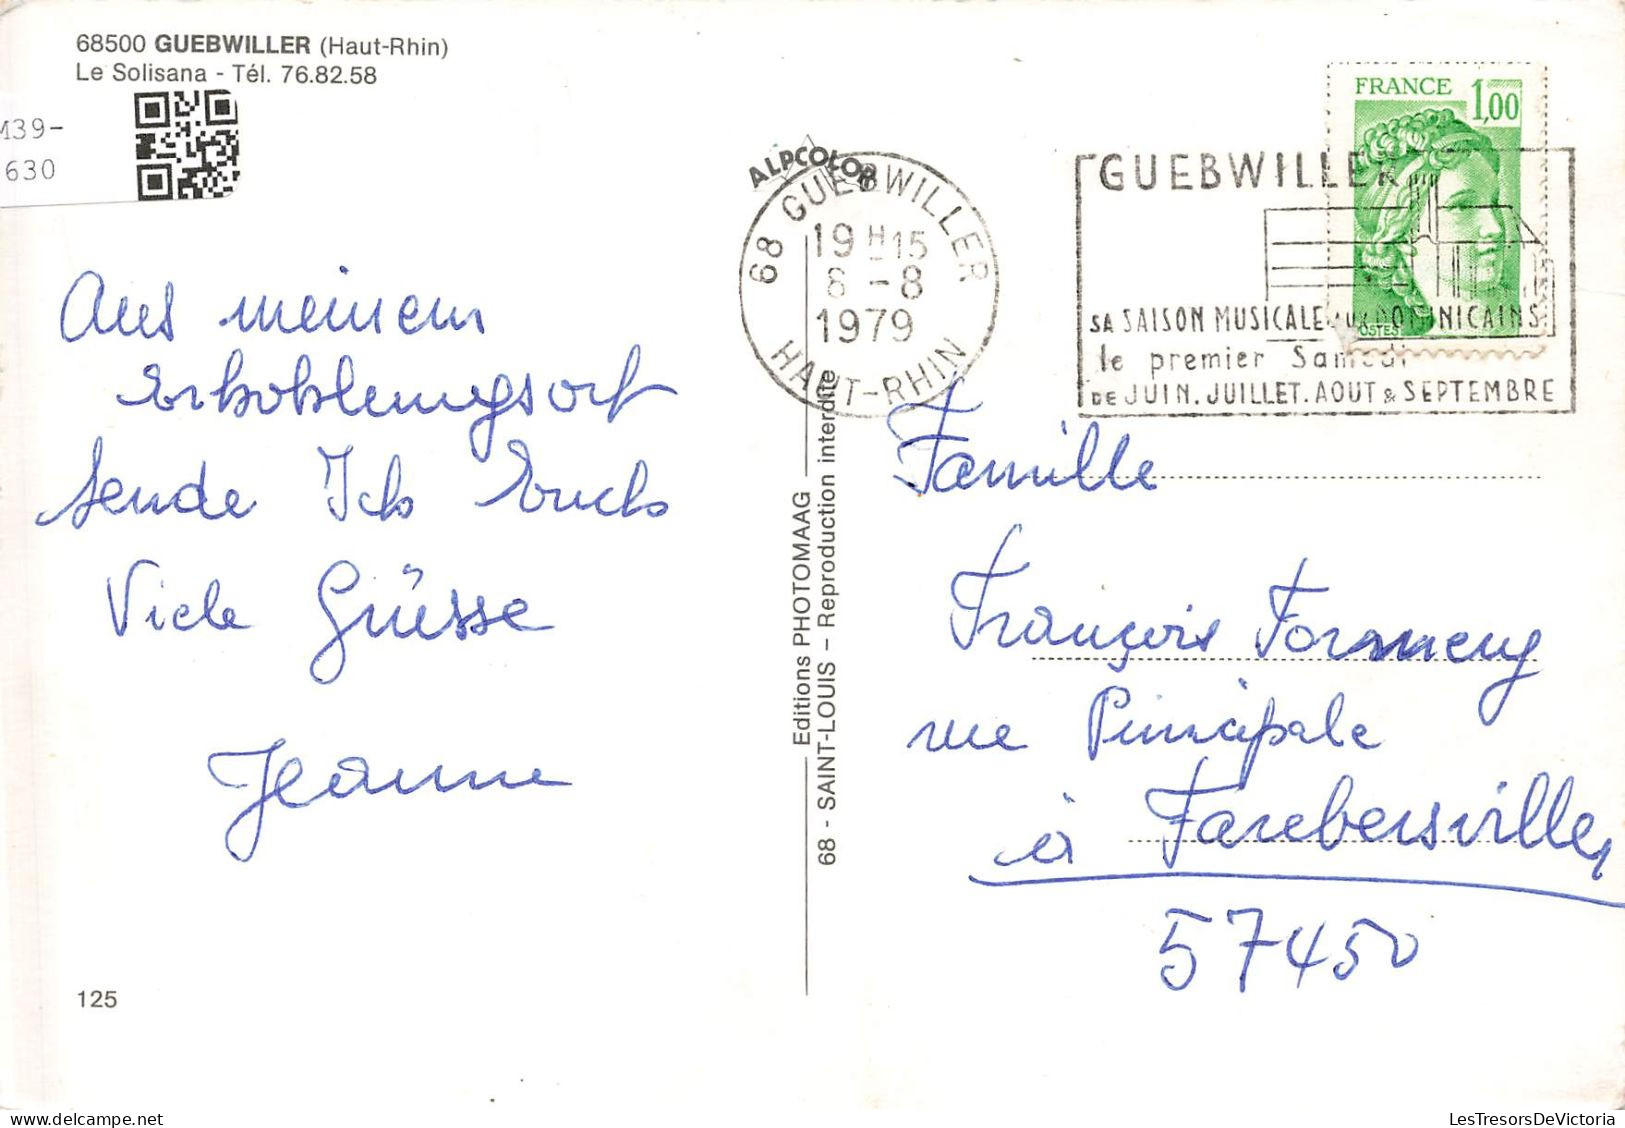 68500 GUEBWILLER (Haut-Rhin)
Le Solisana - Tél. 76.82.58
M39-
630
ALPCOLOR
68 GUEBWILLER
19H15
8-8
1979
HAUT-RHIN
FRANCE 1,00
POSTES
GUEBWILLER
SA SAISON MUSICALE AUX DOMINICAINS
le premier Samedi
DE JUIN. JUILLET. AOUT & SEPTEMBRE
Aus meinem
Erhohlungsort
sende Ich Euch
Viele Grüsse
Jeanne
Editions PHOTOMAAG
68 - SAINT-LOUIS - Reproduction interdite
Famille
François
rue Principale
à Farebersviller
57450
125
LesTresorsDeVictoria